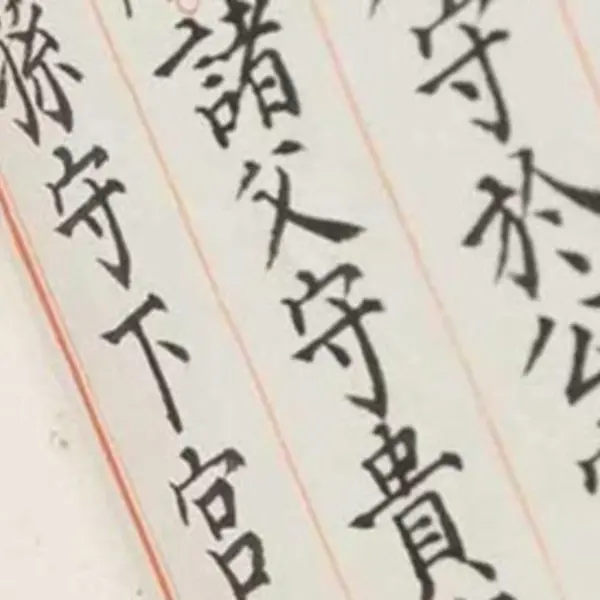 守於公
諸父守貴
孫守下宮